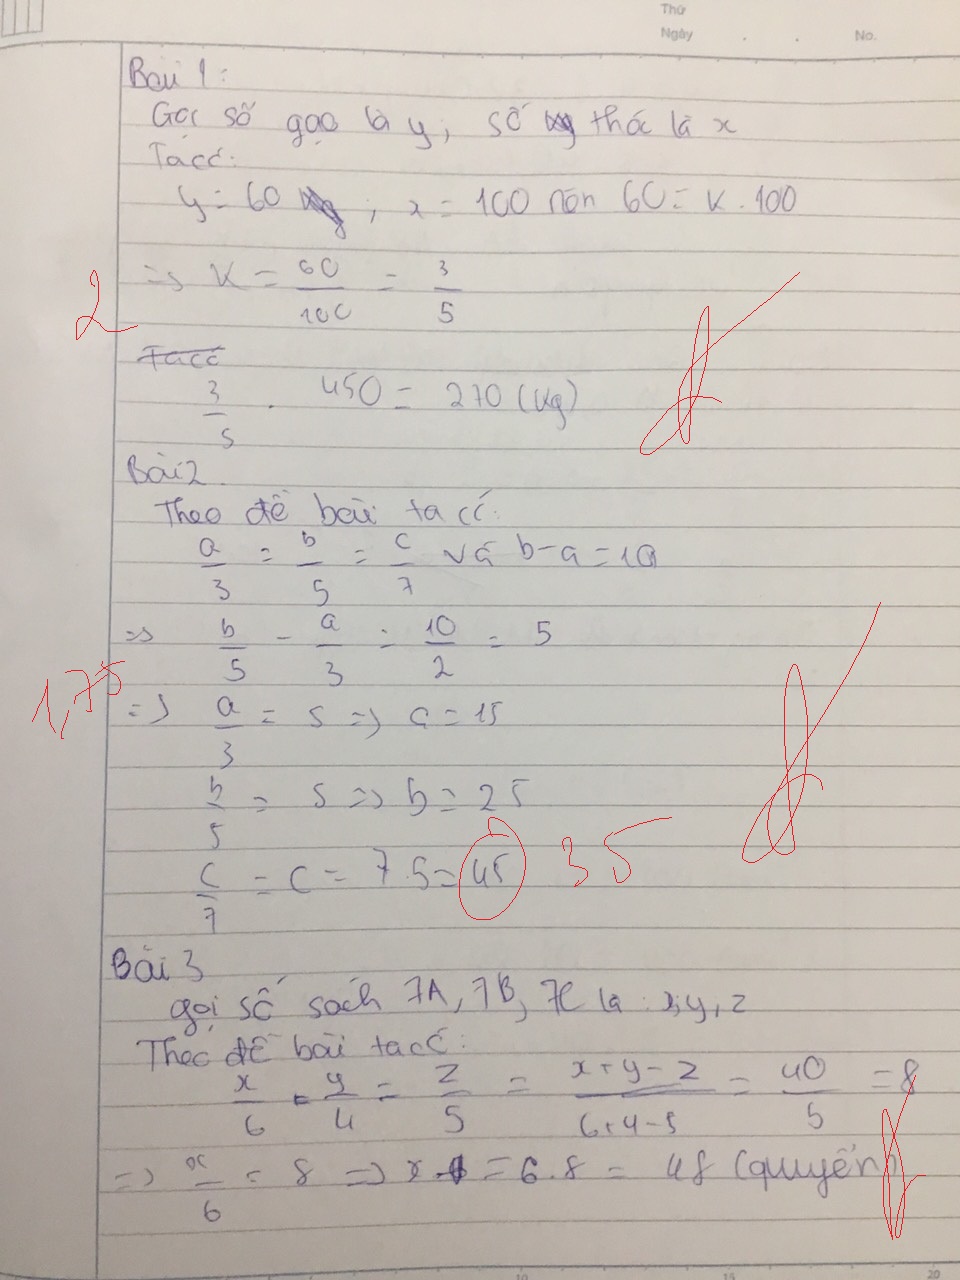 Thứ
Ngày . . No.
Bài 1:
Gọi số gạo là y, số thóc là x
Ta có:
y = 60 ; x = 100 nên 60 = k . 100
=> k = 60/100 = 3/5
2
Ta có
3/5 . 450 = 270 (kg)
Bài 2
Theo đề bài ta có:
a/3 = b/5 = c/7 và b-a=10
=> b/5 - a/3 = 10/2 = 5
1,75
=> a/3 = 5 => a = 15
b/5 = 5 => b = 25
c/7 = c = 7.5 = 45 35
Bài 3
gọi số sách 7A, 7B, 7C là : x, y, z
Theo đề bài ta có:
x/6 = y/4 = z/5 = x+y-z/6+4-5 = 40/5 = 8
=> x/6 = 8 => x = 6.8 = 48 (quyển)
10 15 20